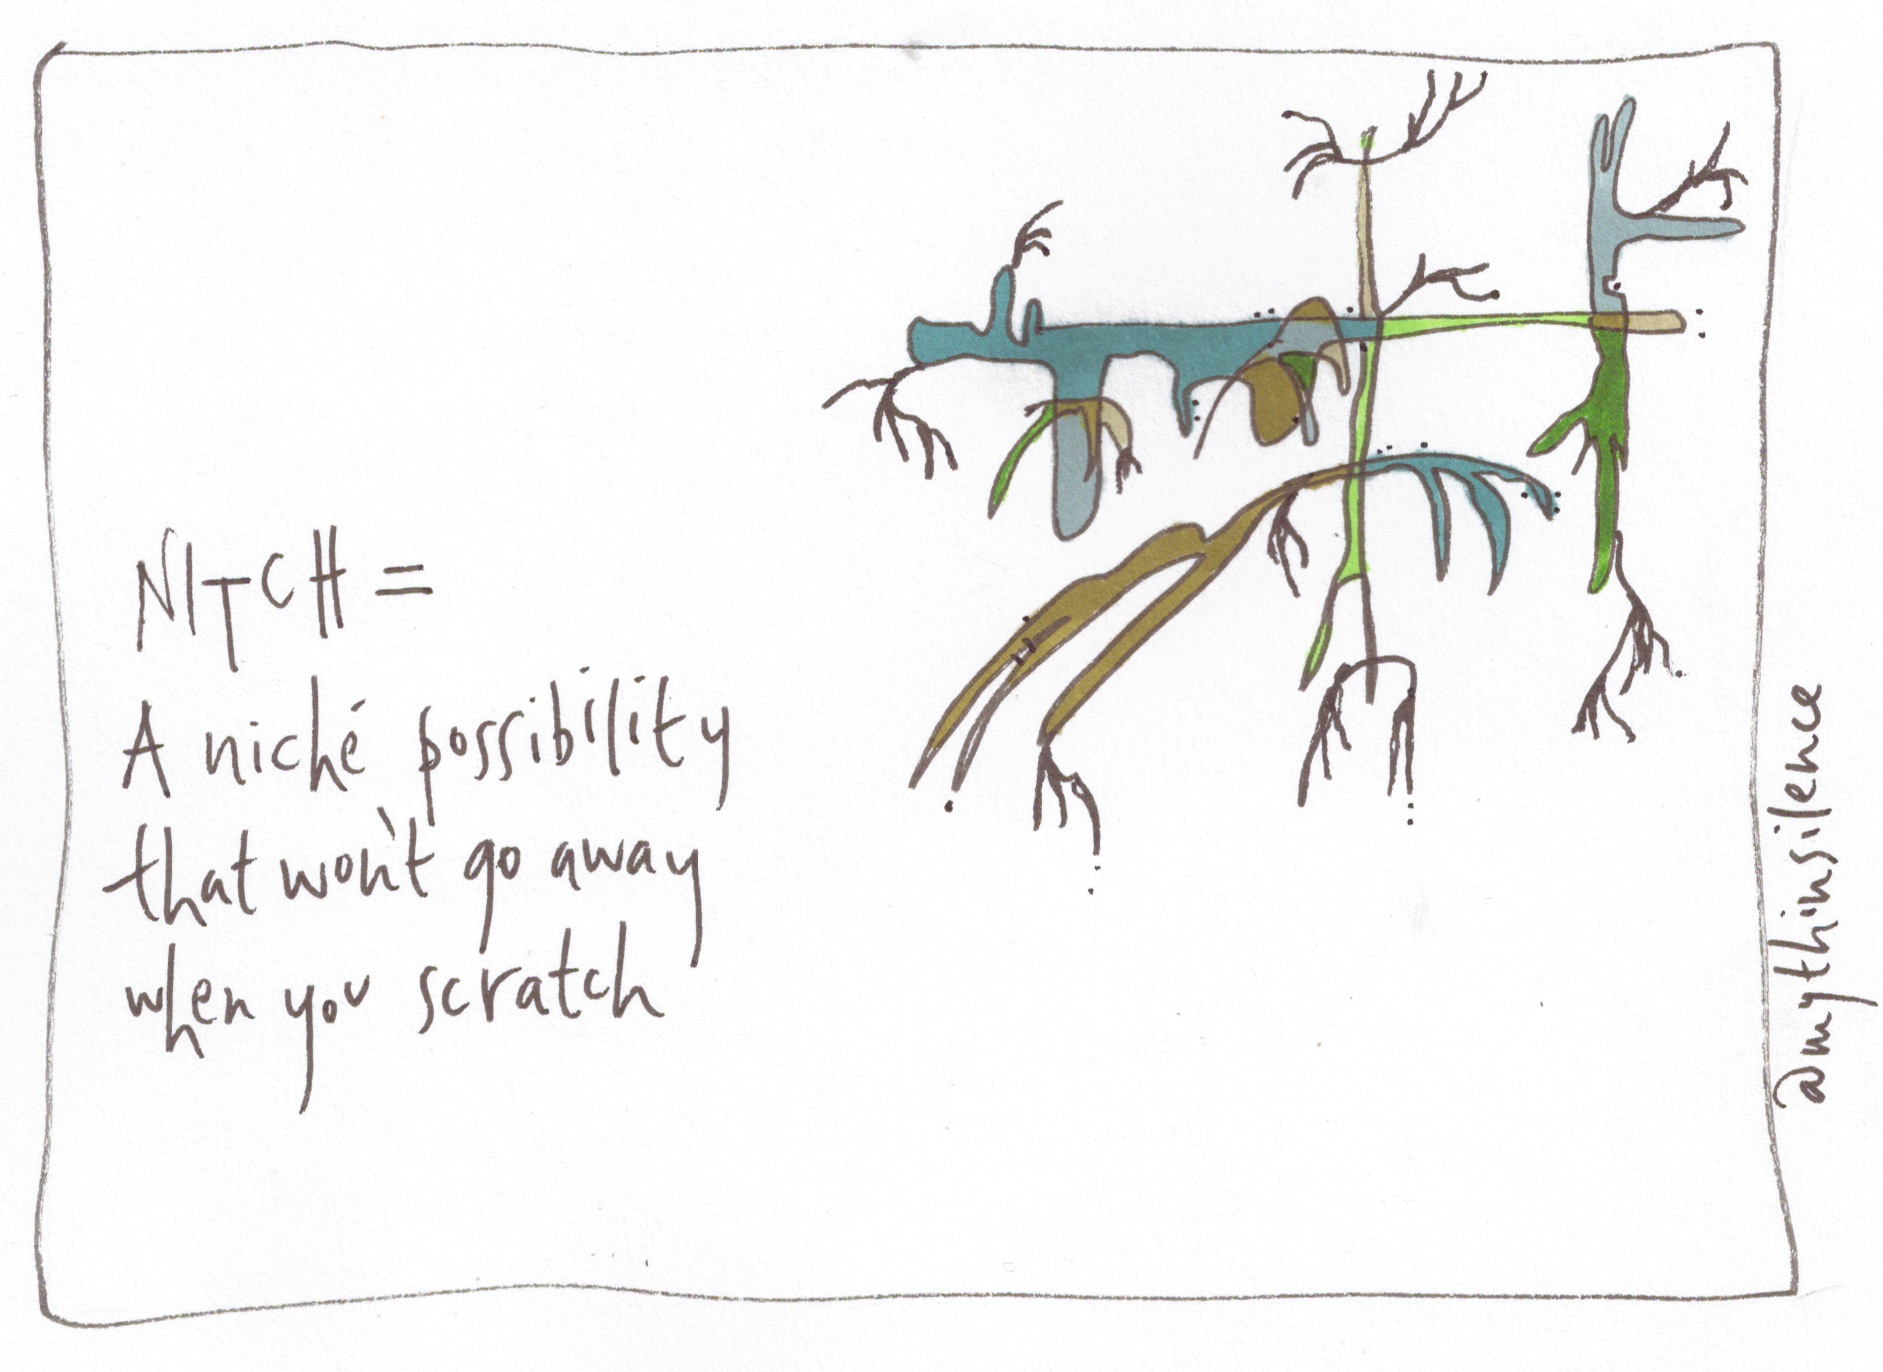 NITCH =
A niché possibility
that won't go away
when you scratch
@mythinsilence